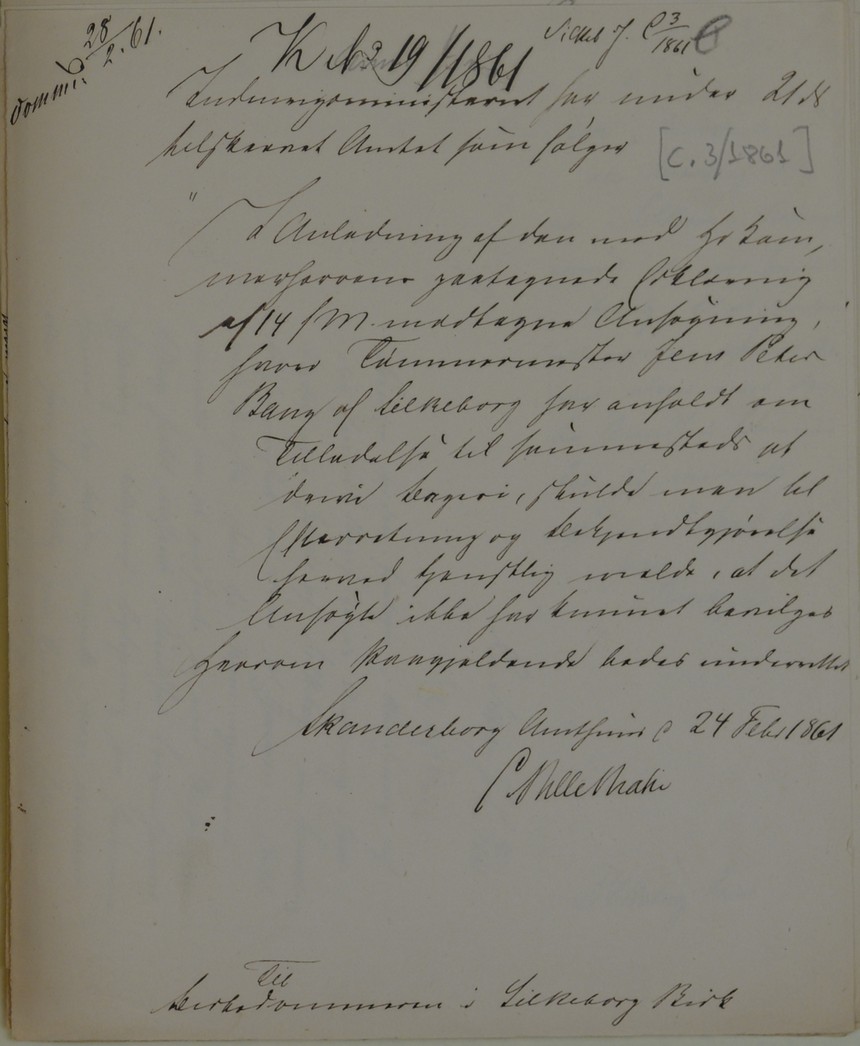 Domm. 28/2. 61.
K No 19/1861
J. C 3/1861
Indenrigsministeriet har under 21 ds
tilskrevet Amtet som følger
[C. 3/1861]
"I Anledning af den med Hr Kam,
merherrens paategnede Erklæring
af 14 f M. modtagne Ansøgning,
hvori Tømmermester Jens Peter
Bang af Silkeborg har anholdt om
Tilladelse til sammesteds at
drive Bageri, skulde man til
Efterretning og Bekjendtgjørelse
herved tjenstlig melde, at det
Ansøgte ikke har kunnet bevilges
Herom Paagjældende bedes underrettet
Skanderborg Amthuus d 24 Febr 1861
Til
Birkedommeren i Silkeborg Birk